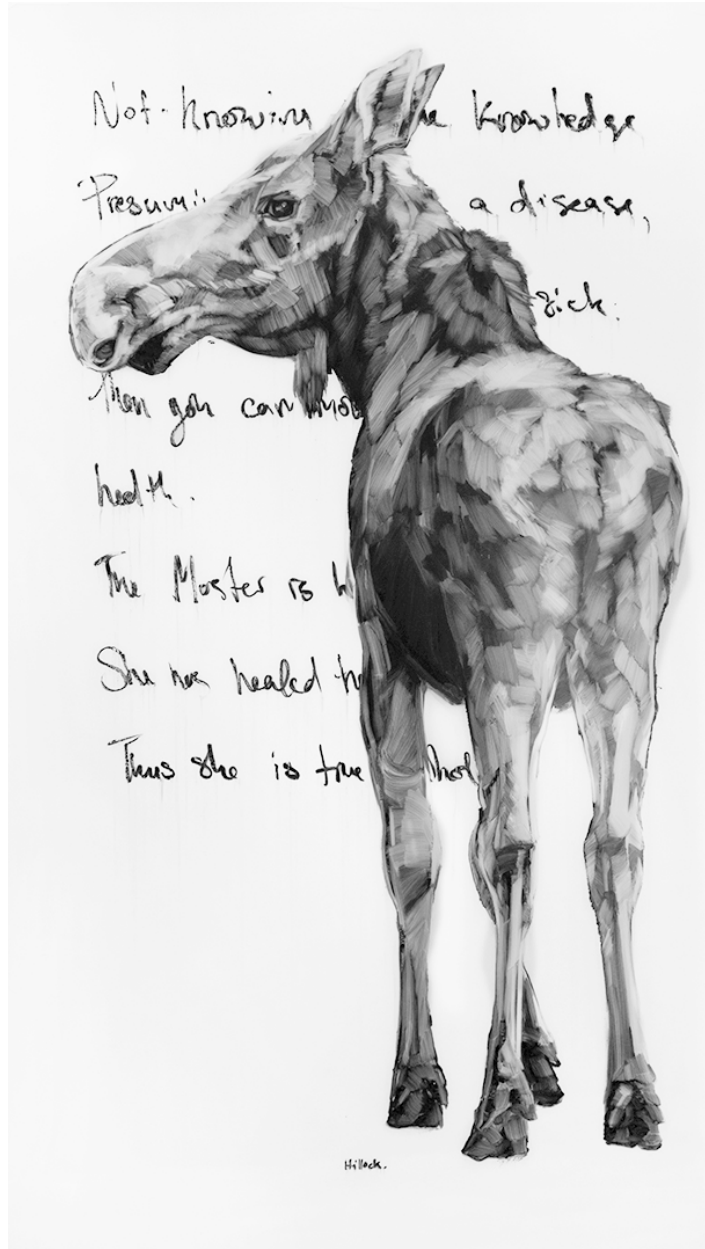 Not-knowin knowledge
Presumi a disease,
sick.
Then you can mov
health.
The Master is h
She has healed he
Thus she is true whol
Hillock.